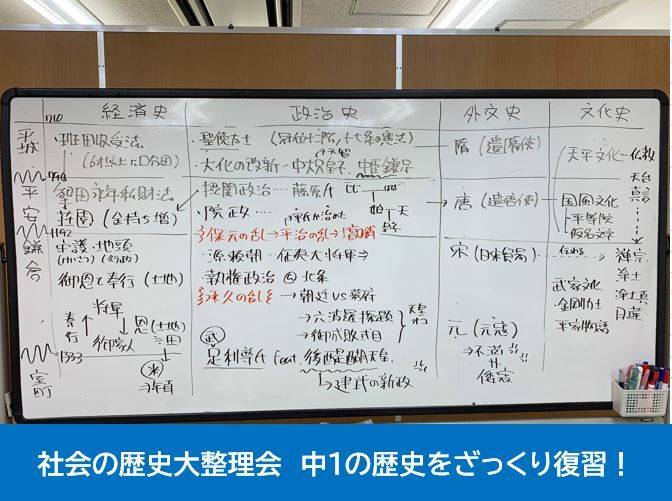 経済史 政治史 外交史 文化史
710
平城
794
平安
1192
鎌倉
1333
室町
・班田収受法
(6才以上に口分田)
墾田永年私財法
荘園(金持ち増)
守護・地頭
御恩と奉公(土地)
将軍
奉公
恩(土地)
御家人
・聖徳太子(冠位十二階/十七条の憲法)
・大化の改新…中大兄皇子、中臣鎌足
天智
・摂関政治…藤原氏
娘 天
・院政…
多保元の乱→平治の乱→清盛
・源頼朝…征夷大将軍⇒
・執権政治 北条
多承久の乱 → 朝廷VS幕府
→六波羅探題
→御成敗式目
武
足利尊氏 feat. 後醍醐天皇
→建武の新政
隋(遣隋使)
唐(遣唐使)
宋(日宋貿易)
元(元寇)
→不満
倭寇
天平文化-仏教
天台
真言
国風文化
平等院
仮名文字
禅宗
浄土
浄土真
日蓮
武家文化
金剛力士
平家物語
社会の歴史大整理会 中1の歴史をざっくり復習！